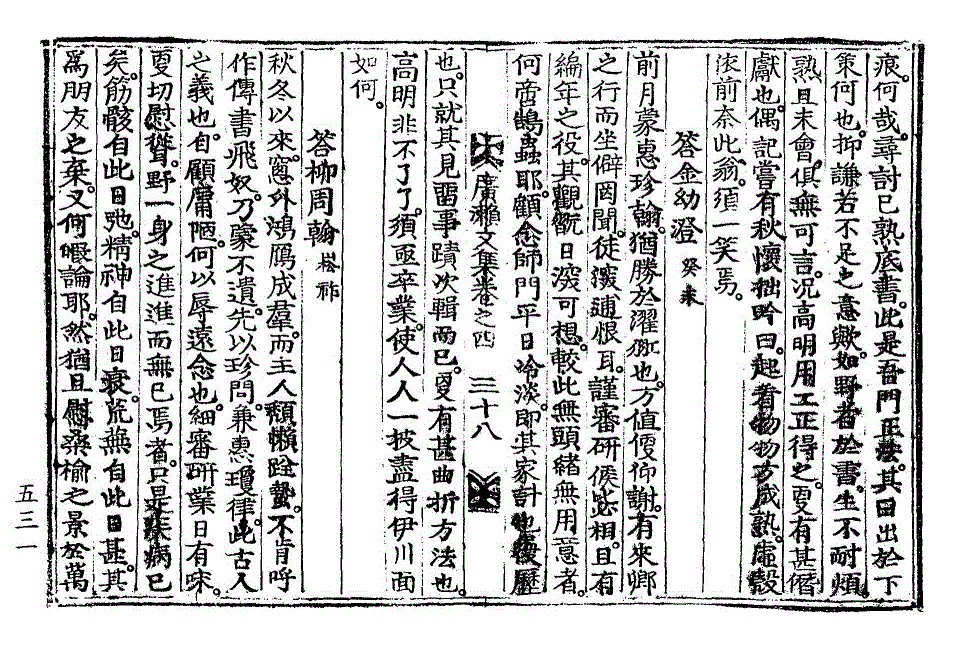 痕何哉尋討已熟底書此是吾門正法其曰出於下
策何也抑謙若不足之意歟如野者於書生不耐煩
熟且未會俱無可言況高明用工正得之更有甚僭
獻也偶記嘗有秋懷拙吟曰起着物物方成熟虛殼
滚前奈此翁須一笑焉
答金幼澄 癸未
前月蒙惠珍翰猶勝於濯 也方值便仰謝有來鄉
之行而坐僻罔聞徒 逋恨耳謹審研候 相且有
編年之役其觀 日 可想較此無頭緒無用意者
何啻鵠蟲耶顧念師門平日冷淡即其家計 履歷
也只就其見留事蹟次輯而已更有甚曲折方法也
高明非不了了須亟卒業使人人一披盡得伊川面
如何
答柳周翰 崧祚
秋冬以來窓外鴻鴈成羣而主人頹懶跧蟄不肯呼
作傳書飛奴乃蒙不遺先以珍問兼惠瓊律此古人
之義也自顧庸陋何以辱遠念也細審研業日有味
更切慰聳野一身之進進而無已焉者只是疾病已
矣筋骸自此日弛精神自此日衰荒蕪自此日甚其
爲朋友之棄又何暇論耶然猶且慰桑楡之景於萬
廣瀨文集卷之四 三十八
五三一